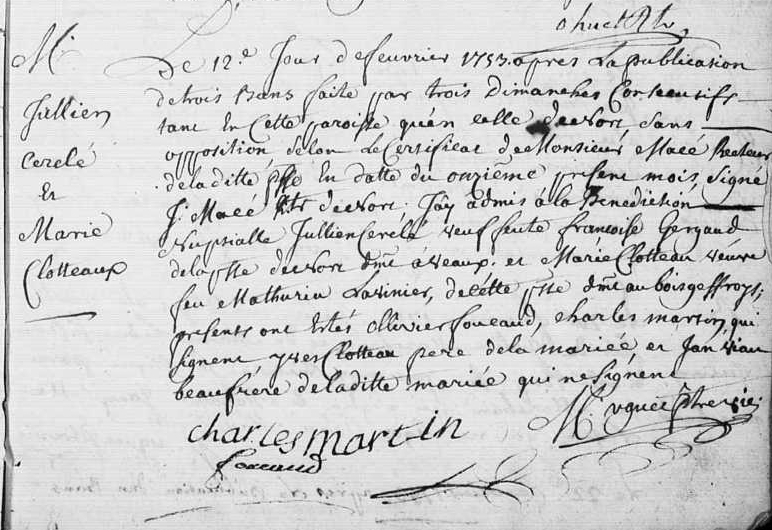 M.
Jullien
Cerelé
Et
Marie
Clotteaux
Le 12.e Jour defeuvrier 1753. apres La publication
detrois Bans faite par trois Dimanches Consecutifs
tant En Cette paroisse quén celle deuort sans
opposition selon Le Certificat deMonsieur Macé Recteur
deladitte psse En datte du onziéme present mois, signé
J: Macé Rtr deuort. J'ay admis à la Benediction
Nuptialle Jullien Cerelé veuf feüe francoise Gergaud
dela psse deuort et Marie Clotteau veuve
feu Mathurin Lavinier, decette psse auboisgeffroys;
presents ont Estés ollivier foucaud, charles martin, qui
signent yves Clotteau pere dela mariée et Jan
beaufrere deladitte mariée qui nesignent
charles martin
foucaud